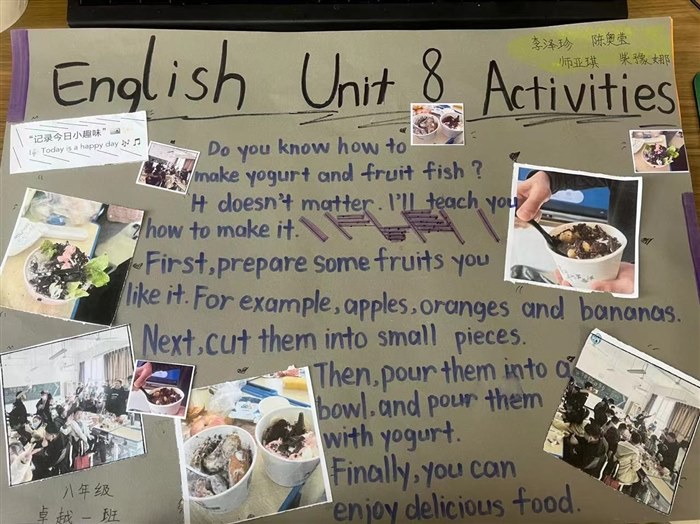 李泽珍 陈奥莹
师亚琪 柴豫娜
English Unit 8 Activities
"记录今日小趣味"
Today is a happy day
Do you know how to
make yogurt and fruit fish?
It doesn't matter. I'll teach you
how to make it.
First, prepare some fruits you
like it. For example, apples, oranges and bananas.
Next, cut them into small pieces.
Then, pour them into a
bowl, and pour them
with yogurt.
Finally, you can
enjoy delicious food.
八年级
卓越一班